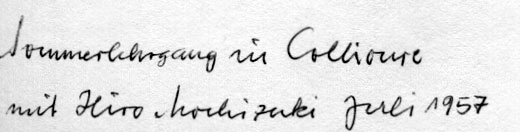 Sommerlehrgang in Collioure
mit Hiro Mochizuki Juli 1957